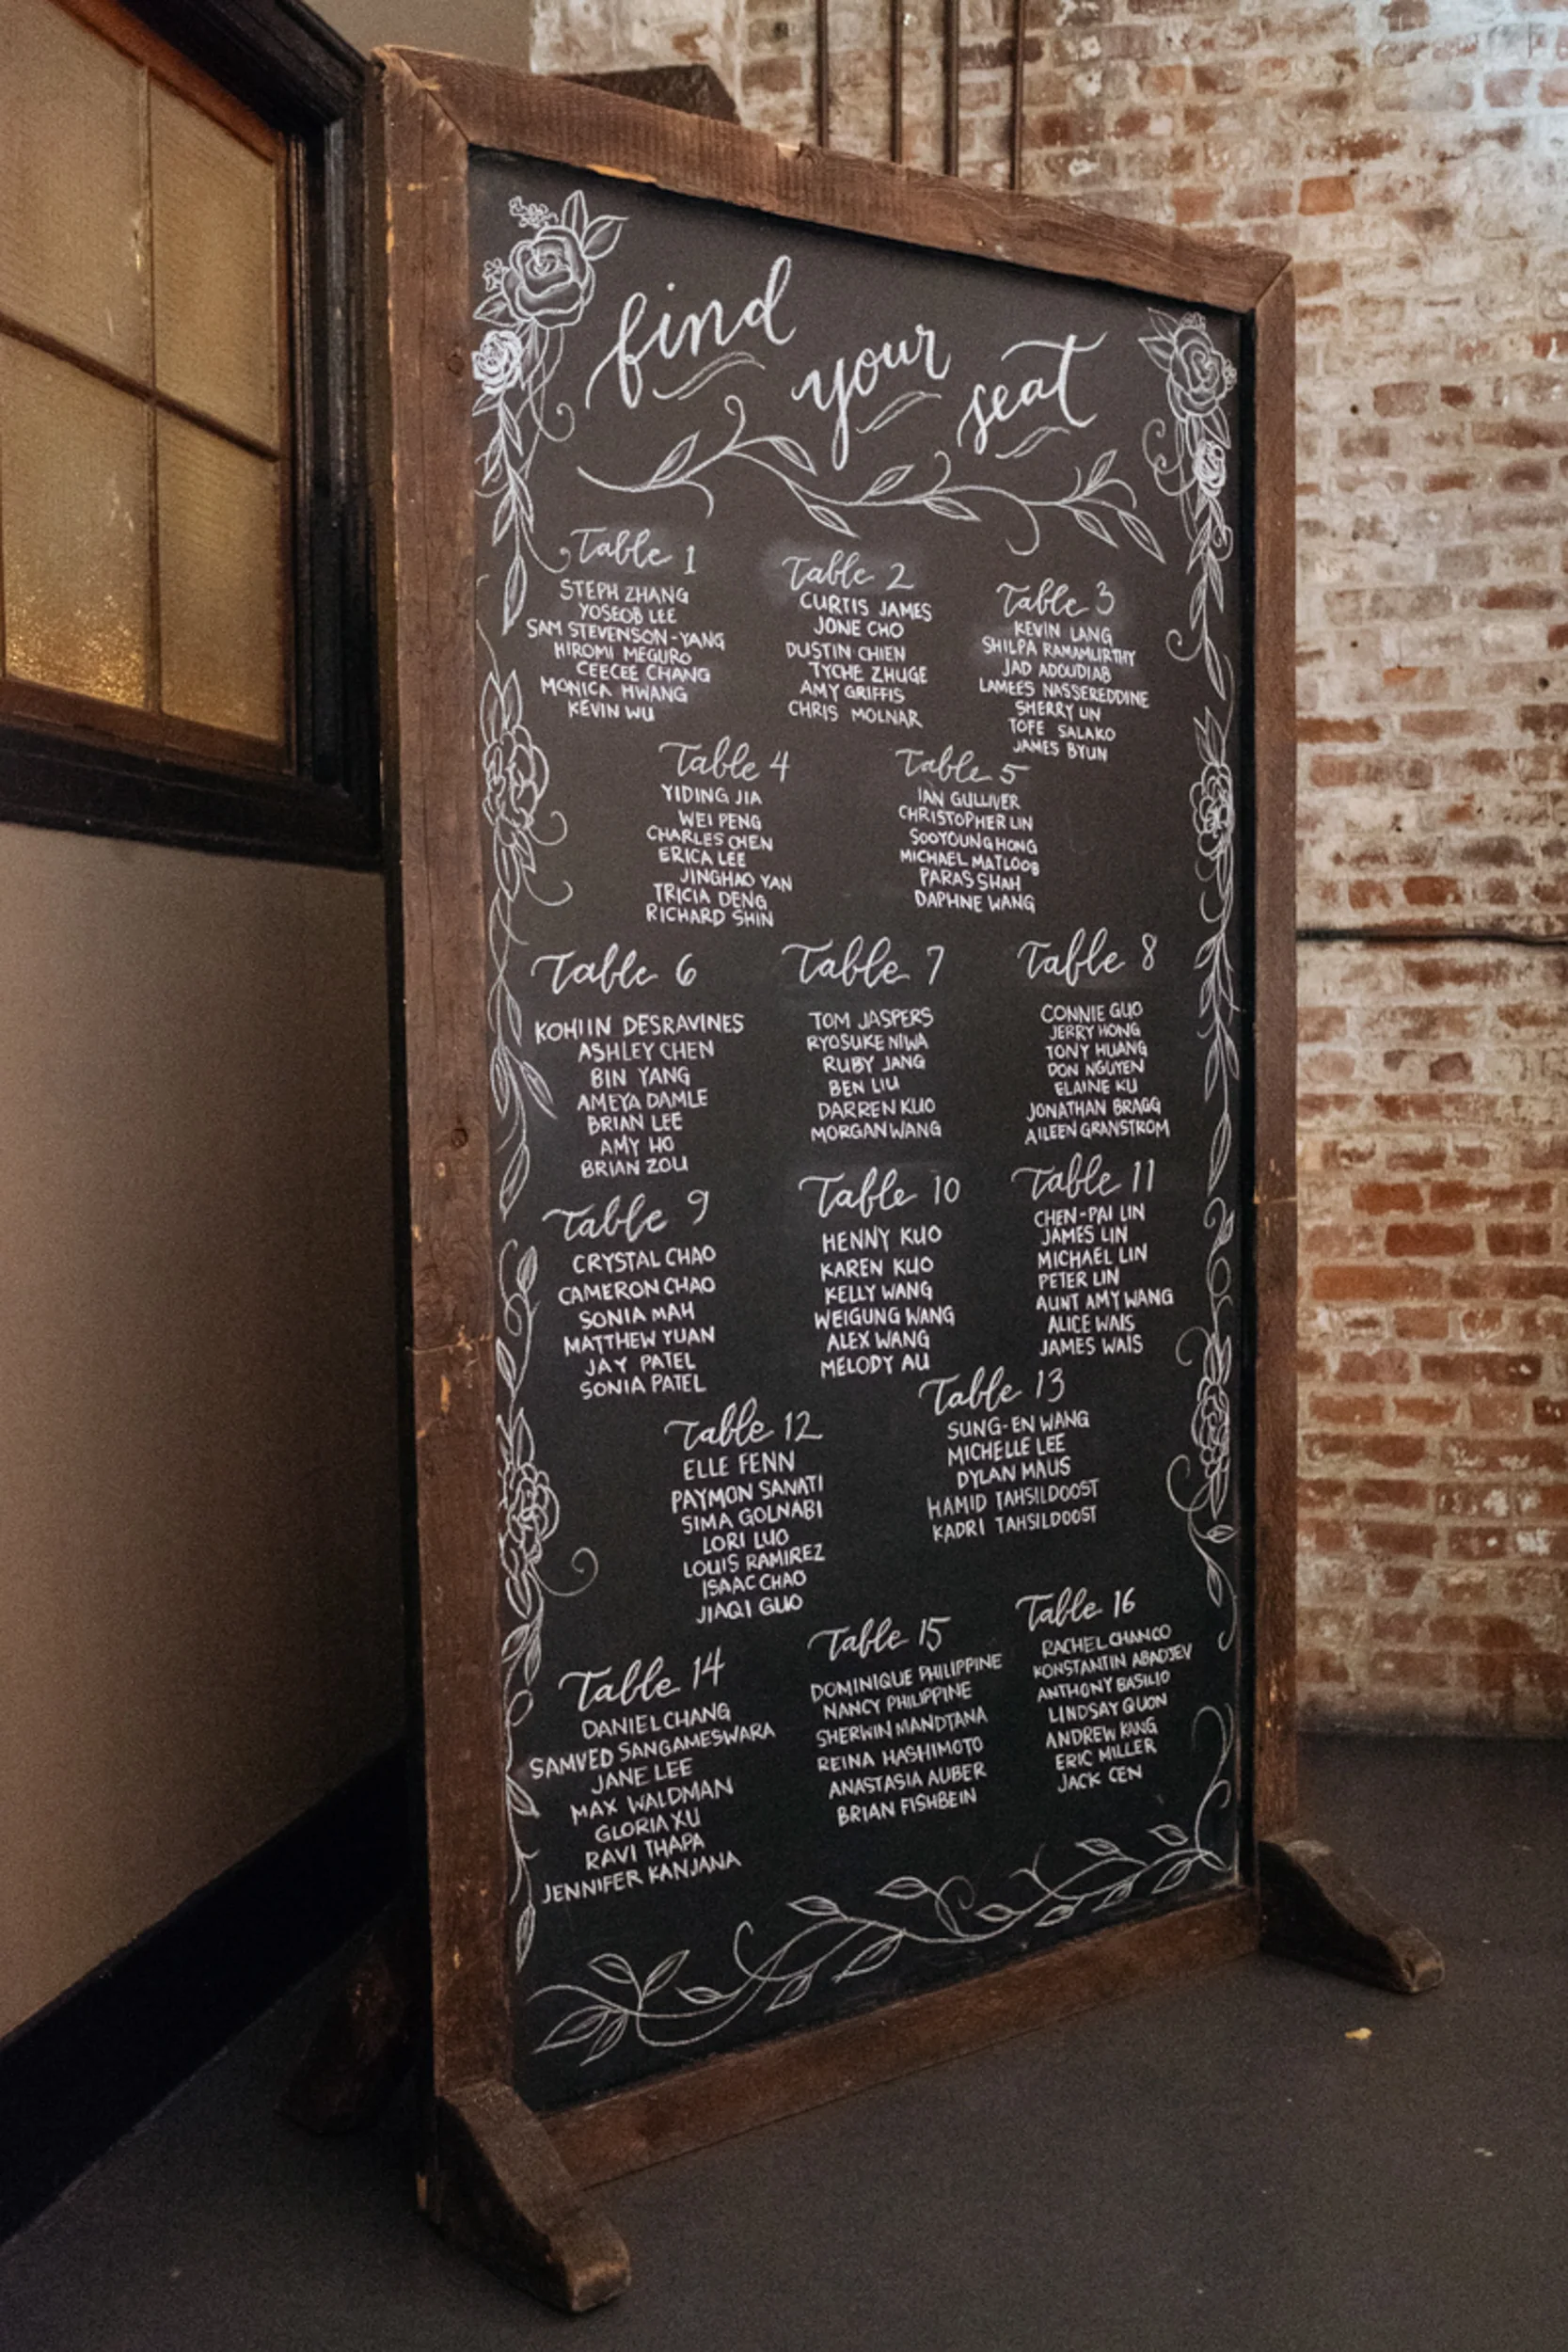 find your seat
Table 1
STEPH ZHANG
YOSEOB LEE
SAM STEVENSON-YANG
HIROMI MEGURO
CEECEE CHANG
MONICA HWANG
KEVIN WU
Table 2
CURTIS JAMES
JONE CHO
DUSTIN CHIEN
TYCHE ZHUGE
AMY GRIFFIS
CHRIS MOLNAR
Table 3
KEVIN LANG
SHILPA RAMAMURTHY
JAD ADOUDIAB
LAMEES NASSEREDDINE
SHERRY LIN
TOFE SALAKO
JAMES BYUN
Table 4
YIDING JIA
WEI PENG
CHARLES CHEN
ERICA LEE
JINGHAO YAN
TRICIA DENG
RICHARD SHIN
Table 5
IAN GULLIVER
CHRISTOPHER LIN
SOOYOUNG HONG
MICHAEL MATLOOB
PARAS SHAH
DAPHNE WANG
Table 6
KOHIIN DESRAVINES
ASHLEY CHEN
BIN YANG
AMEYA DAMLE
BRIAN LEE
AMY HO
BRIAN ZOU
Table 7
TOM JASPERS
RYOSUKE NIWA
RUBY JANG
BEN LIU
DARREN KUO
MORGAN WANG
Table 8
CONNIE GUO
JERRY HONG
TONY HUANG
DON NGUYEN
ELAINE KU
JONATHAN BRAGG
AILEEN GRANSTROM
Table 9
CRYSTAL CHAO
CAMERON CHAO
SONIA MAH
MATTHEW YUAN
JAY PATEL
SONIA PATEL
Table 10
HENNY KUO
KAREN KUO
KELLY WANG
WEIGUNG WANG
ALEX WANG
MELODY AU
Table 11
CHEN-PAI LIN
JAMES LIN
MICHAEL LIN
PETER LIN
AUNT AMY WANG
ALICE WAIS
JAMES WAIS
Table 12
ELLE FENN
PAYMON SANATI
SIMA GOLNABI
LORI LUO
LOUIS RAMIREZ
ISAAC CHAO
JIAQI GUO
Table 13
SUNG-EN WANG
MICHELLE LEE
DYLAN MAUS
HAMID TAHSILDOOST
KADRI TAHSILDOOST
Table 14
DANIEL CHANG
SAMVED SANGAMESWARA
JANE LEE
MAX WALDMAN
GLORIA XU
RAVI THAPA
JENNIFER KANJANA
Table 15
DOMINIQUE PHILIPPINE
NANCY PHILIPPINE
SHERWIN MANDTANA
REINA HASHIMOTO
ANASTASIA AUBER
BRIAN FISHBEIN
Table 16
RACHEL CHANCO
KONSTANTIN ABADJEV
ANTHONY BASILIO
LINDSAY QUON
ANDREW KANG
ERIC MILLER
JACK CEN